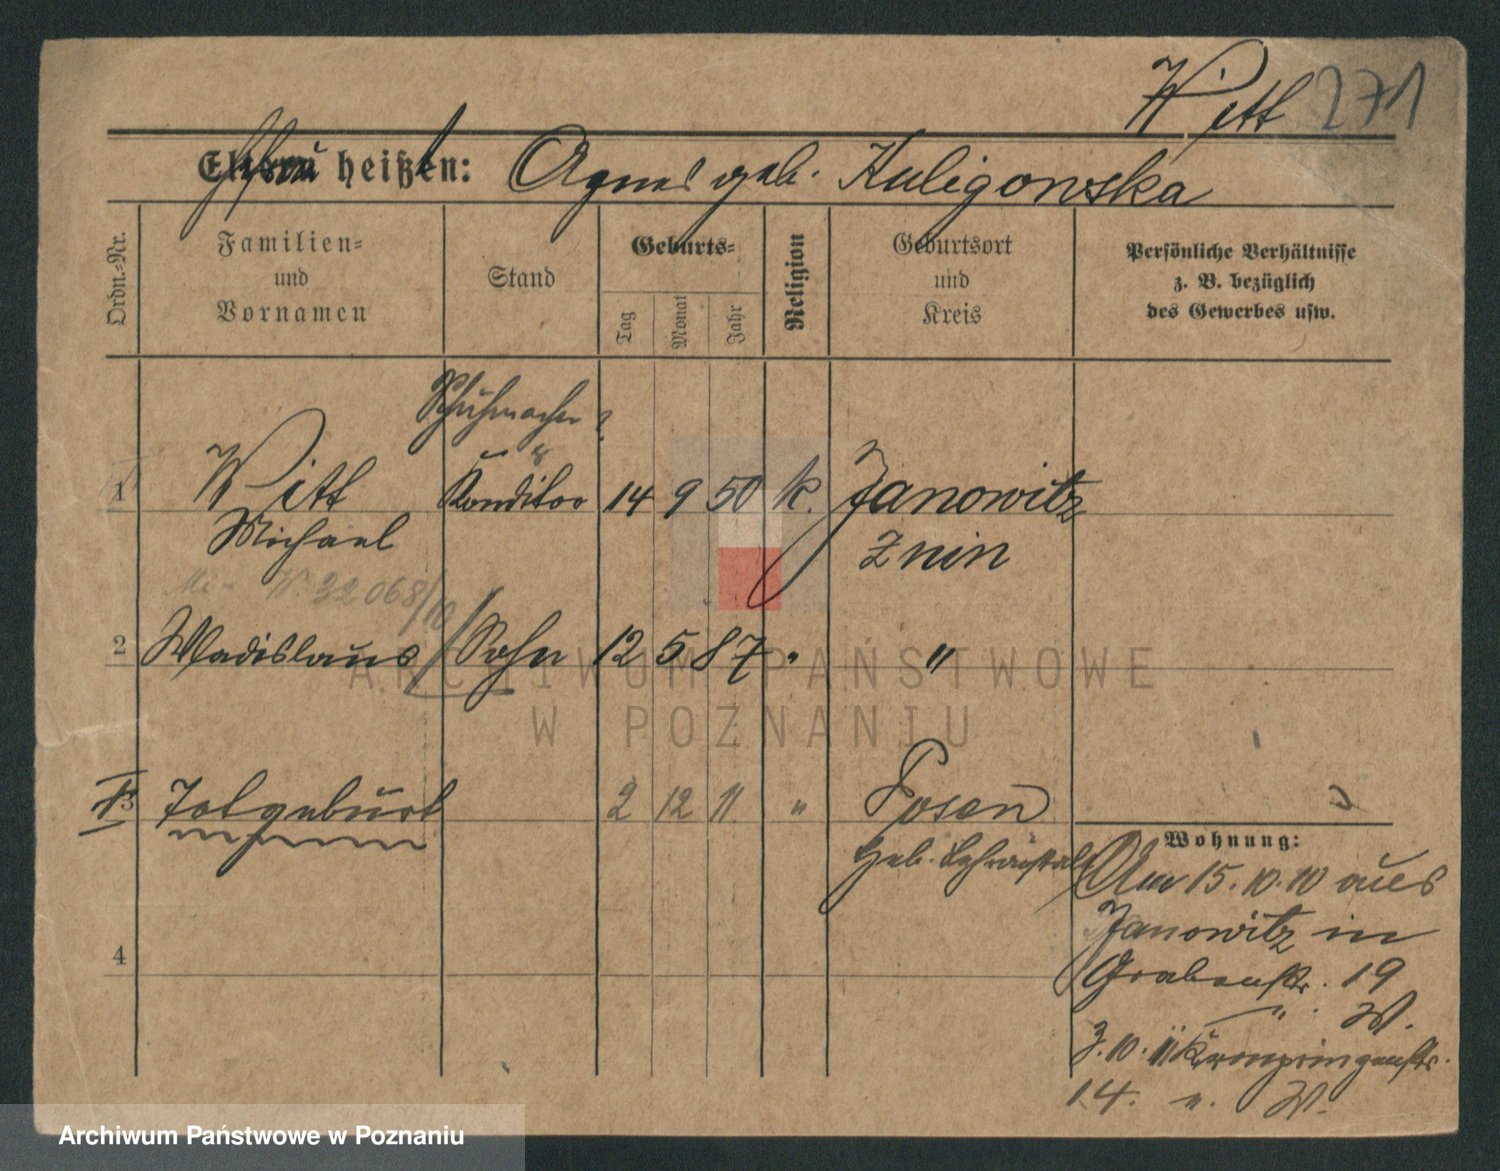 Witt 271
Eltern heißen: Agnes geb. Kuligowska
Ordn.-Nr.
Familien-
und
Vornamen
Stand
Geburts-
Tag
Monat
Jahr
Religion
Geburtsort
und
Kreis
Persönliche Verhältnisse
z. B. bezüglich
des Gewerbes usw.
Schuhmacher
1 Witt Konditor 14 9 50 k. Janowitz
Michael Znin
32068/10
2 Wladislaus Sohn 12 5 87 " "
3 Totgeburt 2 12 11 " Posen
Geb.
Wohnung:
Am 15.10.10 aus
Janowitz in
Grabenstr. 19
" W.
3.10.11 Kronprinzenstr.
14. n. W.
4
ARCHIWUM PAŃSTWOWE
W POZNANIU
Archiwum Państwowe w Poznaniu